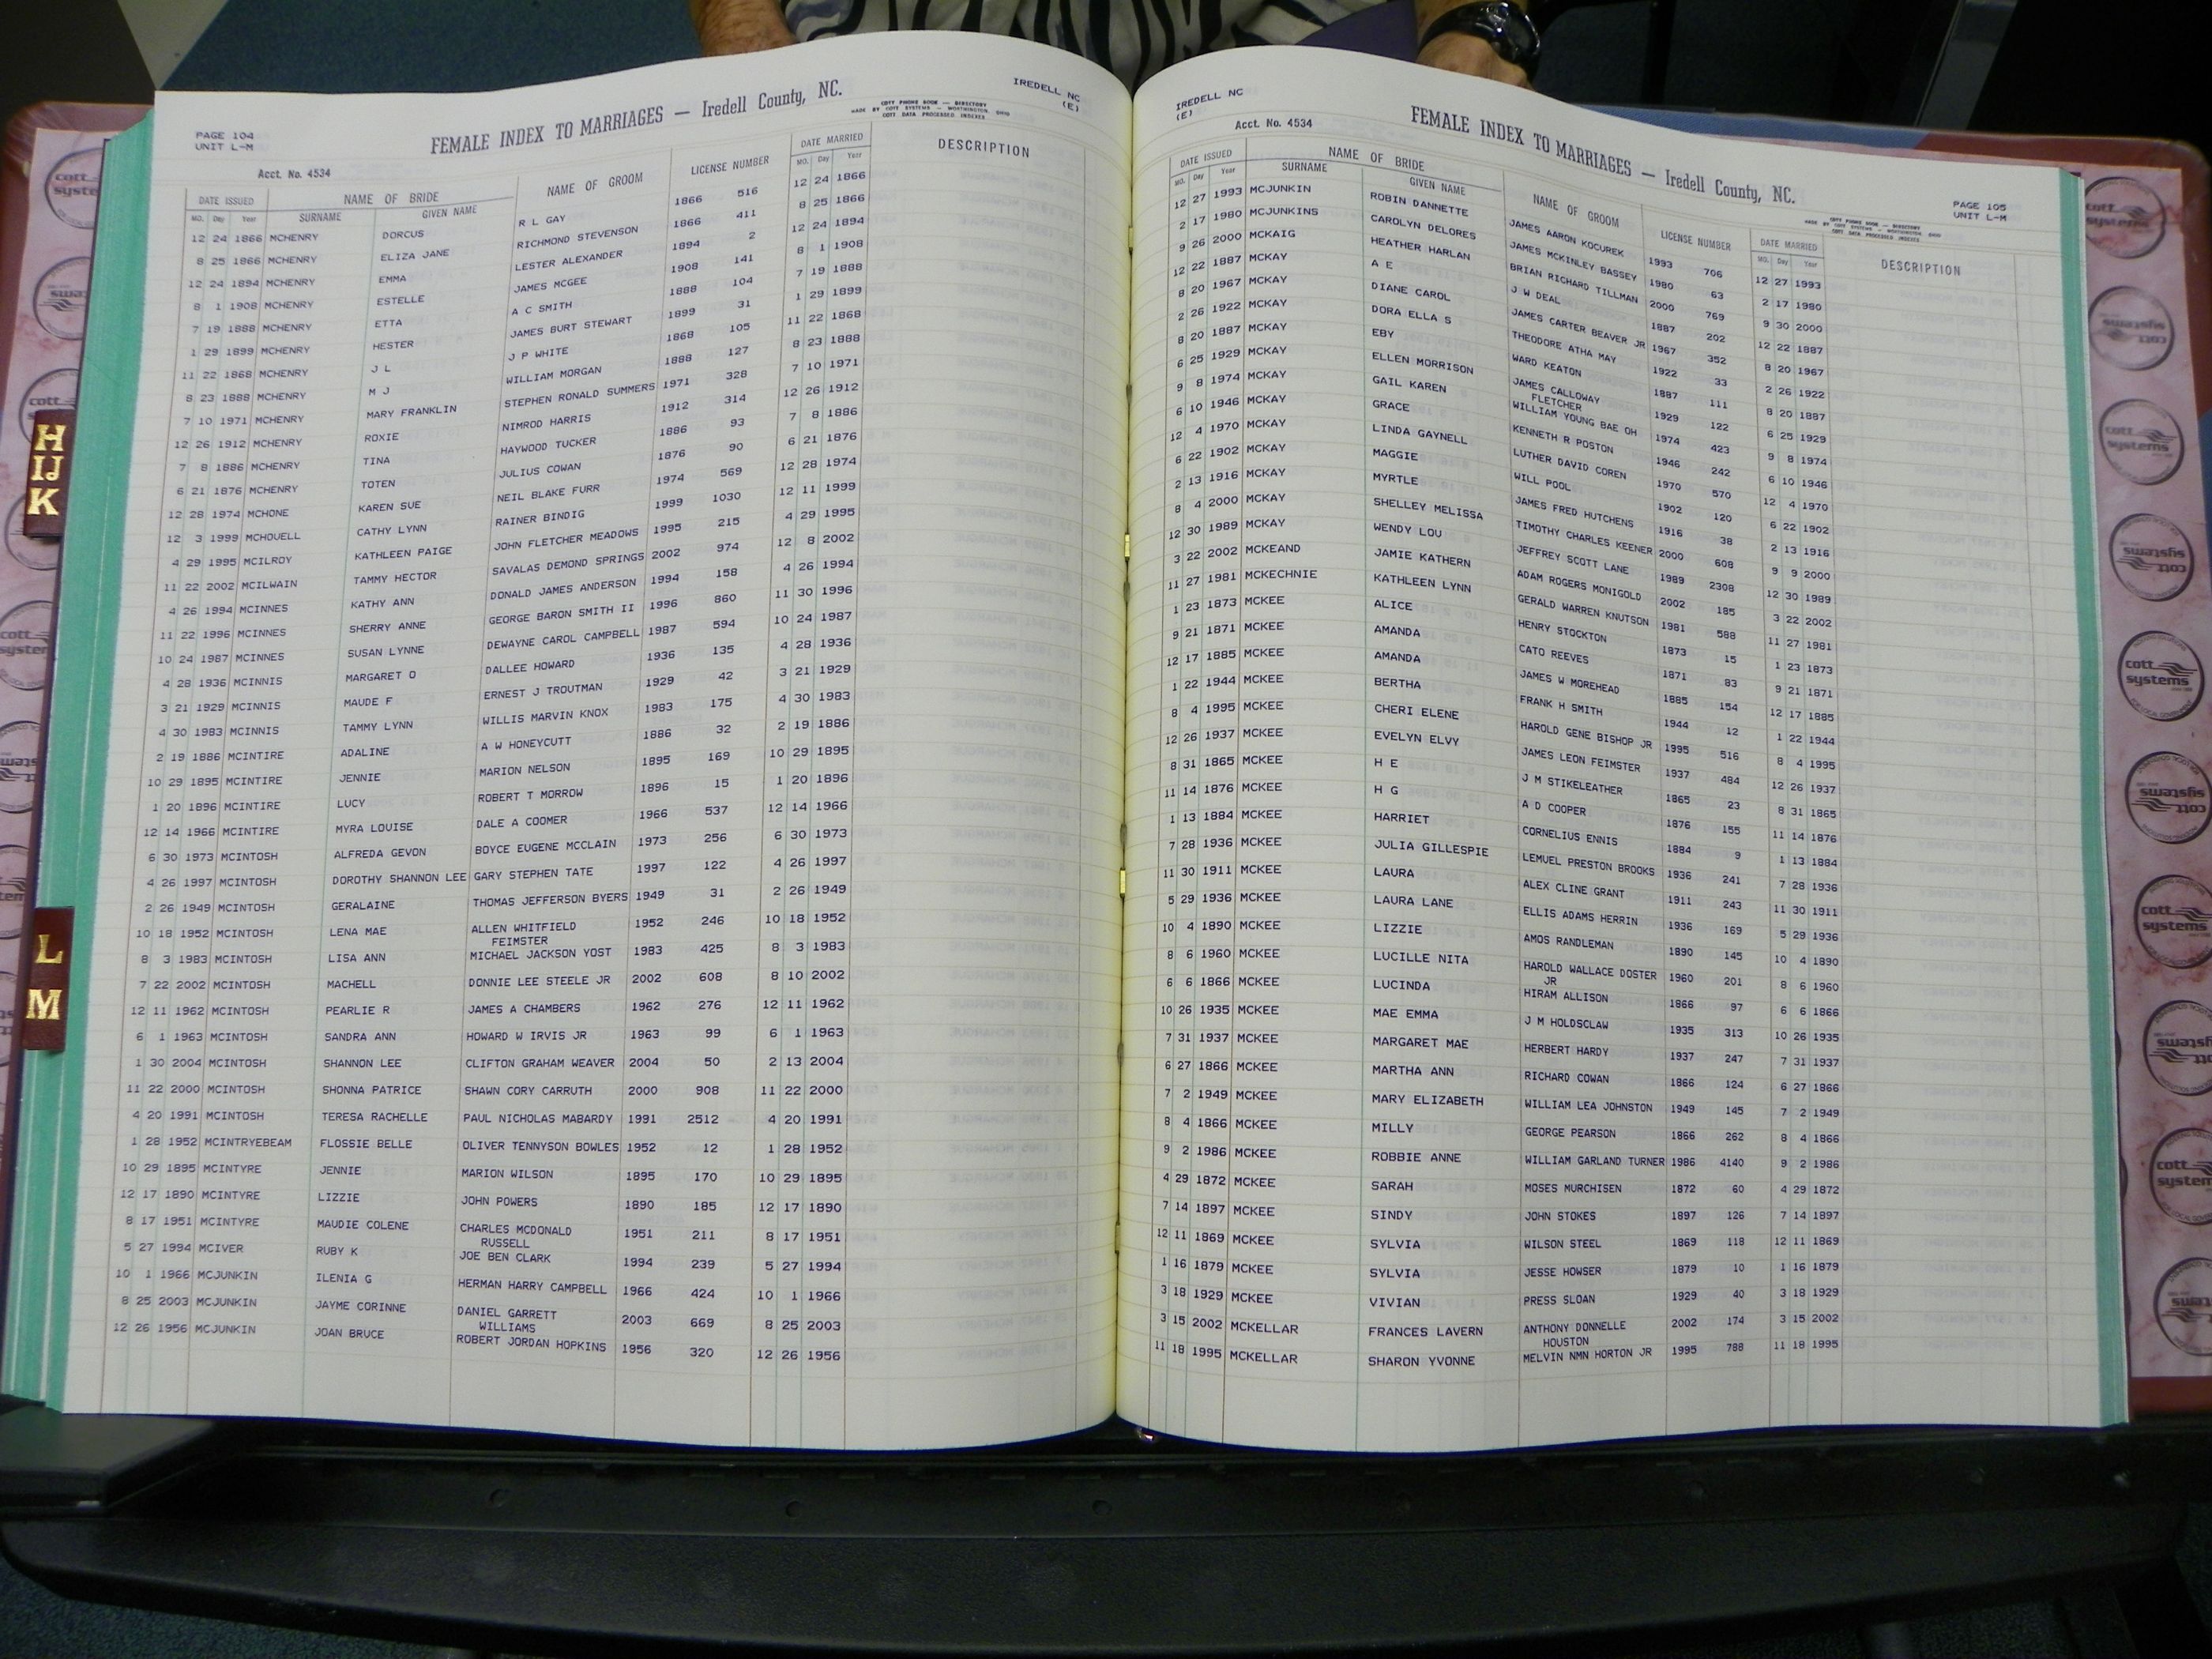 PAGE 104
UNIT L-M
FEMALE INDEX TO MARRIAGES — Iredell County, NC.
MADE BY COTT PHONE BOOK — DIRECTORY
COTT SYSTEMS — WORTHINGTON, OHIO
COTT DATA PROCESSED INDEXES
IREDELL NC
(E)
Acct. No. 4534
DATE ISSUED NAME OF BRIDE NAME OF GROOM LICENSE NUMBER DATE MARRIED DESCRIPTION
MO. Day Year SURNAME GIVEN NAME MO. Day Year
12 24 1866 MCHENRY DORCUS R L GAY 1866 516 12 24 1866
8 25 1866 MCHENRY ELIZA JANE RICHMOND STEVENSON 1866 411 8 25 1866
12 24 1894 MCHENRY EMMA LESTER ALEXANDER 1894 2 12 24 1894
8 1 1908 MCHENRY ESTELLE JAMES MCGEE 1908 141 8 1 1908
7 19 1888 MCHENRY ETTA A C SMITH 1888 104 7 19 1888
1 29 1899 MCHENRY HESTER JAMES BURT STEWART 1899 31 1 29 1899
11 22 1868 MCHENRY J L J P WHITE 1868 105 11 22 1868
8 23 1888 MCHENRY M J WILLIAM MORGAN 1888 127 8 23 1888
7 10 1971 MCHENRY MARY FRANKLIN STEPHEN RONALD SUMMERS 1971 328 7 10 1971
12 26 1912 MCHENRY ROXIE NIMROD HARRIS 1912 314 12 26 1912
7 8 1886 MCHENRY TINA HAYWOOD TUCKER 1886 93 7 8 1886
6 21 1876 MCHENRY TOTEN JULIUS COWAN 1876 90 6 21 1876
12 28 1974 MCHONE KAREN SUE NEIL BLAKE FURR 1974 569 12 28 1974
12 3 1999 MCHOUELL CATHY LYNN RAINER BINDIG 1999 1030 12 11 1999
4 29 1995 MCILROY KATHLEEN PAIGE JOHN FLETCHER MEADOWS 1995 215 4 29 1995
11 22 2002 MCILWAIN TAMMY HECTOR SAVALAS DEMOND SPRINGS 2002 974 12 8 2002
4 26 1994 MCINNES KATHY ANN DONALD JAMES ANDERSON 1994 158 4 26 1994
11 22 1996 MCINNES SHERRY ANNE GEORGE BARON SMITH II 1996 860 11 30 1996
10 24 1987 MCINNES SUSAN LYNNE DEWAYNE CAROL CAMPBELL 1987 594 10 24 1987
4 28 1936 MCINNIS MARGARET O DALLEE HOWARD 1936 135 4 28 1936
3 21 1929 MCINNIS MAUDE F ERNEST J TROUTMAN 1929 42 3 21 1929
4 30 1983 MCINNIS TAMMY LYNN WILLIS MARVIN KNOX 1983 175 4 30 1983
2 19 1886 MCINTIRE ADALINE A W HONEYCUTT 1886 32 2 19 1886
10 29 1895 MCINTIRE JENNIE MARION NELSON 1895 169 10 29 1895
1 20 1896 MCINTIRE LUCY ROBERT T MORROW 1896 15 1 20 1896
12 14 1966 MCINTIRE MYRA LOUISE DALE A COOMER 1966 537 12 14 1966
6 30 1973 MCINTOSH ALFREDA GEVON BOYCE EUGENE MCCLAIN 1973 256 6 30 1973
4 26 1997 MCINTOSH DOROTHY SHANNON LEE GARY STEPHEN TATE 1997 122 4 26 1997
2 26 1949 MCINTOSH GERALAINE THOMAS JEFFERSON BYERS 1949 31 2 26 1949
10 18 1952 MCINTOSH LENA MAE ALLEN WHITFIELD 1952 246 10 18 1952
FEIMSTER
8 3 1983 MCINTOSH LISA ANN MICHAEL JACKSON YOST 1983 425 8 3 1983
7 22 2002 MCINTOSH MACHELL DONNIE LEE STEELE JR 2002 608 8 10 2002
12 11 1962 MCINTOSH PEARLIE R JAMES A CHAMBERS 1962 276 12 11 1962
6 1 1963 MCINTOSH SANDRA ANN HOWARD W IRVIS JR 1963 99 6 1 1963
1 30 2004 MCINTOSH SHANNON LEE CLIFTON GRAHAM WEAVER 2004 50 2 13 2004
11 22 2000 MCINTOSH SHONNA PATRICE SHAWN CORY CARRUTH 2000 908 11 22 2000
4 20 1991 MCINTOSH TERESA RACHELLE PAUL NICHOLAS MABARDY 1991 2512 4 20 1991
1 28 1952 MCINTRYEBEAM FLOSSIE BELLE OLIVER TENNYSON BOWLES 1952 12 1 28 1952
10 29 1895 MCINTYRE JENNIE MARION WILSON 1895 170 10 29 1895
12 17 1890 MCINTYRE LIZZIE JOHN POWERS 1890 185 12 17 1890
8 17 1951 MCINTYRE MAUDIE COLENE CHARLES MCDONALD 1951 211 8 17 1951
RUSSELL
5 27 1994 MCIVER RUBY K JOE BEN CLARK 1994 239 5 27 1994
10 1 1966 MCJUNKIN ILENIA G HERMAN HARRY CAMPBELL 1966 424 10 1 1966
8 25 2003 MCJUNKIN JAYME CORINNE DANIEL GARRETT 2003 669 8 25 2003
WILLIAMS
12 26 1956 MCJUNKIN JOAN BRUCE ROBERT JORDAN HOPKINS 1956 320 12 26 1956
IREDELL NC
(E)
Acct. No. 4534
FEMALE INDEX TO MARRIAGES — Iredell County, NC.
MADE BY COTT PHONE BOOK — DIRECTORY
COTT SYSTEMS — WORTHINGTON, OHIO
COTT DATA PROCESSED INDEXES
PAGE 105
UNIT L-M
DATE ISSUED NAME OF BRIDE NAME OF GROOM LICENSE NUMBER DATE MARRIED DESCRIPTION
MO. Day Year SURNAME GIVEN NAME MO. Day Year
12 27 1993 MCJUNKIN ROBIN DANNETTE JAMES AARON KOCUREK 1993 706 12 27 1993
2 17 1980 MCJUNKINS CAROLYN DELORES JAMES MCKINLEY BASSEY 1980 63 2 17 1980
9 26 2000 MCKAIG HEATHER HARLAN BRIAN RICHARD TILLMAN 2000 769 9 30 2000
12 22 1887 MCKAY A E J W DEAL 1887 202 12 22 1887
8 20 1967 MCKAY DIANE CAROL JAMES CARTER BEAVER JR 1967 352 8 20 1967
2 26 1922 MCKAY DORA ELLA S THEODORE ATHA MAY 1922 33 2 26 1922
8 20 1887 MCKAY EBY WARD KEATON 1887 111 8 20 1887
6 25 1929 MCKAY ELLEN MORRISON JAMES CALLOWAY 1929 122 6 25 1929
FLETCHER
9 8 1974 MCKAY GAIL KAREN WILLIAM YOUNG BAE OH 1974 423 9 8 1974
6 10 1946 MCKAY GRACE KENNETH R POSTON 1946 242 6 10 1946
12 4 1970 MCKAY LINDA GAYNELL LUTHER DAVID COREN 1970 570 12 4 1970
6 22 1902 MCKAY MAGGIE WILL POOL 1902 120 6 22 1902
2 13 1916 MCKAY MYRTLE JAMES FRED HUTCHENS 1916 38 2 13 1916
8 4 2000 MCKAY SHELLEY MELISSA TIMOTHY CHARLES KEENER 2000 608 9 9 2000
12 30 1989 MCKAY WENDY LOU JEFFREY SCOTT LANE 1989 2308 12 30 1989
3 22 2002 MCKEAND JAMIE KATHERN ADAM ROGERS MONIGOLD 2002 185 3 22 2002
11 27 1981 MCKECHNIE KATHLEEN LYNN GERALD WARREN KNUTSON 1981 588 11 27 1981
1 23 1873 MCKEE ALICE HENRY STOCKTON 1873 15 1 23 1873
9 21 1871 MCKEE AMANDA CATO REEVES 1871 83 9 21 1871
12 17 1885 MCKEE AMANDA JAMES W MOREHEAD 1885 154 12 17 1885
1 22 1944 MCKEE BERTHA FRANK H SMITH 1944 12 1 22 1944
8 4 1995 MCKEE CHERI ELENE HAROLD GENE BISHOP JR 1995 516 8 4 1995
12 26 1937 MCKEE EVELYN ELVY JAMES LEON FEIMSTER 1937 484 12 26 1937
8 31 1865 MCKEE H E J M STIKELEATHER 1865 23 8 31 1865
11 14 1876 MCKEE H G A D COOPER 1876 155 11 14 1876
1 13 1884 MCKEE HARRIET CORNELIUS ENNIS 1884 9 1 13 1884
7 28 1936 MCKEE JULIA GILLESPIE LEMUEL PRESTON BROOKS 1936 241 7 28 1936
11 30 1911 MCKEE LAURA ALEX CLINE GRANT 1911 243 11 30 1911
5 29 1936 MCKEE LAURA LANE ELLIS ADAMS HERRIN 1936 169 5 29 1936
10 4 1890 MCKEE LIZZIE AMOS RANDLEMAN 1890 145 10 4 1890
8 6 1960 MCKEE LUCILLE NITA HAROLD WALLACE DOSTER 1960 201 8 6 1960
JR
6 6 1866 MCKEE LUCINDA HIRAM ALLISON 1866 97 6 6 1866
10 26 1935 MCKEE MAE EMMA J M HOLDSCLAW 1935 313 10 26 1935
7 31 1937 MCKEE MARGARET MAE HERBERT HARDY 1937 247 7 31 1937
6 27 1866 MCKEE MARTHA ANN RICHARD COWAN 1866 124 6 27 1866
7 2 1949 MCKEE MARY ELIZABETH WILLIAM LEA JOHNSTON 1949 145 7 2 1949
8 4 1866 MCKEE MILLY GEORGE PEARSON 1866 262 8 4 1866
9 2 1986 MCKEE ROBBIE ANNE WILLIAM GARLAND TURNER 1986 4140 9 2 1986
4 29 1872 MCKEE SARAH MOSES MURCHISEN 1872 60 4 29 1872
7 14 1897 MCKEE SINDY JOHN STOKES 1897 126 7 14 1897
12 11 1869 MCKEE SYLVIA WILSON STEEL 1869 118 12 11 1869
1 16 1879 MCKEE SYLVIA JESSE HOWSER 1879 10 1 16 1879
3 18 1929 MCKEE VIVIAN PRESS SLOAN 1929 40 3 18 1929
3 15 2002 MCKELLAR FRANCES LAVERN ANTHONY DONNELLE 2002 174 3 15 2002
HOUSTON
11 18 1995 MCKELLAR SHARON YVONNE MELVIN NMN HORTON JR 1995 788 11 18 1995
H
IJ
K
L
M
cott systems